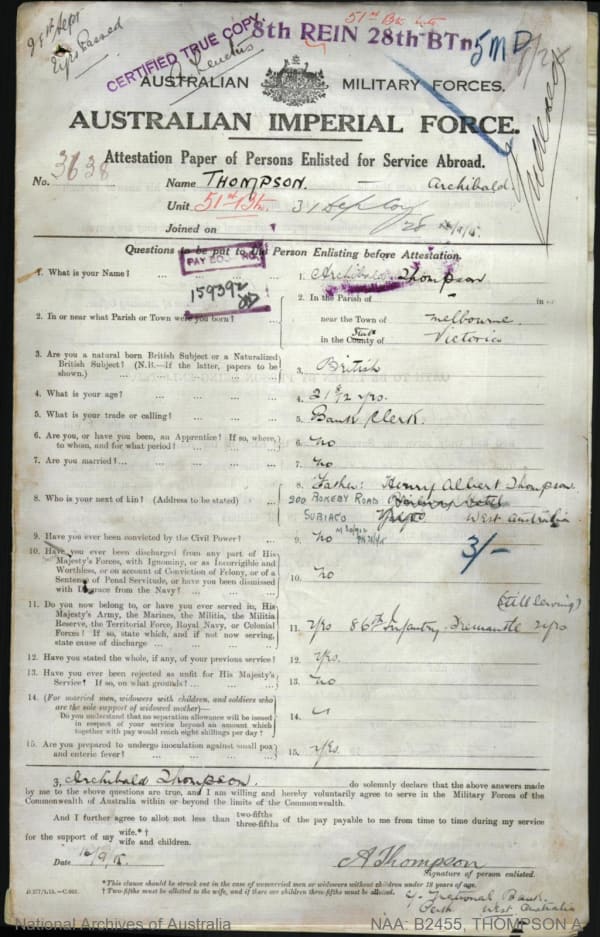 9th Sept
Eyes Passed
CERTIFIED TRUE COPY.
51st Btn
8th REIN 28th BTn
5 MD
AUSTRALIAN MILITARY FORCES.
AUSTRALIAN IMPERIAL FORCE.
Attestation Paper of Persons Enlisted for Service Abroad.
No. 3638 Name THOMPSON. Archibald.
Unit 51st Btn.
Joined on 16/9/15.
Questions to be put to the Person Enlisting before Attestation.
PAY BOOK NO.
159392
1. What is your Name? ... 1. Archibald Thompson
2. In or near what Parish or Town were you born? ... 2. In the Parish of - in or
near the Town of Melbourne.
in the County of State Victoria
3. Are you a natural born British Subject or a Naturalized
British Subject? (N.B.—If the latter, papers to be
shown.) ... 3. British
4. What is your age? ... 4. 21 8/12 yrs.
5. What is your trade or calling? ... 5. Bank Clerk.
6. Are you, or have you been, an Apprentice? If so, where,
to whom, and for what period? ... 6. No
7. Are you married? ... 7. No
8. Who is your next of kin? (Address to be stated) ... 8. Father: Henry Albert Thompson
200 ROKEBY ROAD
SUBIACO West Australia
9. Have you ever been convicted by the Civil Power? ... 9. No
3/-
10. Have you ever been discharged from any part of His
Majesty's Forces, with Ignominy, or as Incorrigible and
Worthless, or on account of Conviction of Felony, or of a
Sentence of Penal Servitude, or have you been dismissed
with Disgrace from the Navy? ... 10. No
11. Do you now belong to, or have you ever served in, His
Majesty's Army, the Marines, the Militia, the Militia
Reserve, the Territorial Force, Royal Navy, or Colonial
Forces? If so, state which, and if not now serving,
state cause of discharge ... 11. Yes 86th Infantry. Fremantle 2 yrs
(still serving)
12. Have you stated the whole, if any, of your previous service? 12. Yes.
13. Have you ever been rejected as unfit for His Majesty's
Service? If so, on what grounds? ... 13. No
14. (For married men, widowers with children, and soldiers who
are the sole support of widowed mother)—
Do you understand that no separation allowance will be issued
in respect of your service beyond an amount which
together with pay would reach eight shillings per day? ... 14.
15. Are you prepared to undergo inoculation against small pox
and enteric fever? ... 15. Yes.
I, Archibald Thompson. do solemnly declare that the above answers made
by me to the above questions are true, and I am willing and hereby voluntarily agree to serve in the Military Forces of the
Commonwealth of Australia within or beyond the limits of the Commonwealth.
And I further agree to allot not less than two-fifths
three-fifths of the pay payable to me from time to time during my service
for the support of my wife.*†
wife and children.
Date 16/9/15. A Thompson
Signature of person enlisted.
*This clause should be struck out in the case of unmarried men or widowers without children under 18 years of age.
† Two-fifths must be allotted to the wife, and if there are children three-fifths must be allotted.
National Bank.
Perth West Australia
National Archives of Australia NAA: B2455, THOMPSON A